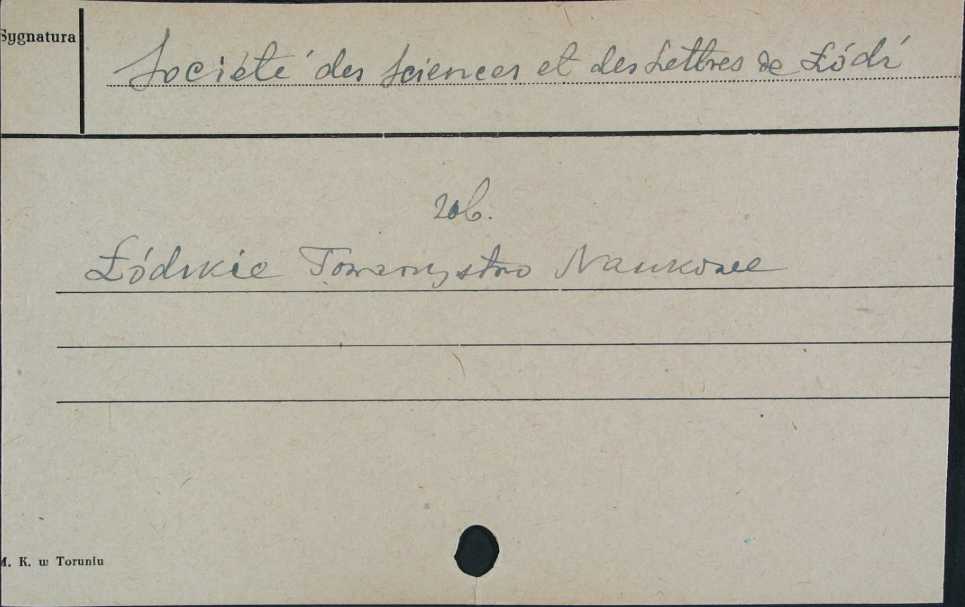 Sygnatura
Société des Sciences et des Lettres de Łódź
zob.
Łódzkie Towarzystwo Naukowe
M. K. w Toruniu